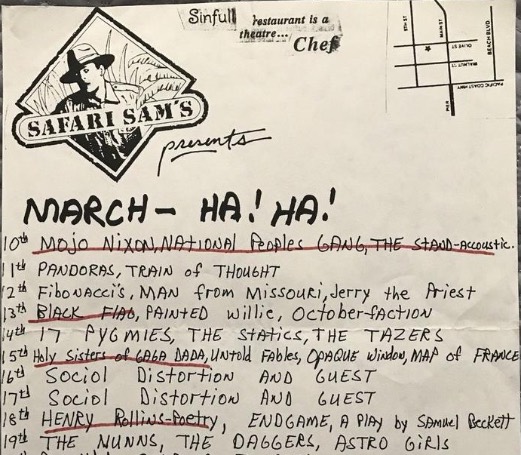 Sinful! restaurant is a
theatre...
Chef
6TH ST
MAIN ST
OLIVE ST
WALNUT ST
BEACH BLVD.
PACIFIC COAST HWY
PIER
SAFARI SAM'S
presents
MARCH - HA! HA!
10th MOJO NIXON, NATIONAL PEOPLES GANG, THE STAND-Acoustic.
11th PANDORAS, TRAIN of THOUGHT
12th FiboNAcci's, MAN from MISSOURI, Jerry the Priest
13th BLACK FLAG, PAINTED Willie, October-fACTION
14th 17 PYGMIES, THE STATICS, THE TAZERS
15th Holy Sisters of GAGA DADA, UNtold Fables, OPAQUE Window, MAP of FRANCE
16th Sociol Distortion AND GUEST
17th Sociol Distortion AND GUEST
18th HENRY Rollins-Poetry, ENDGAME, A PlAy by SAMuel Beckett
19th THE NUNNS, THE DAGGERS, ASTRO GIRLS